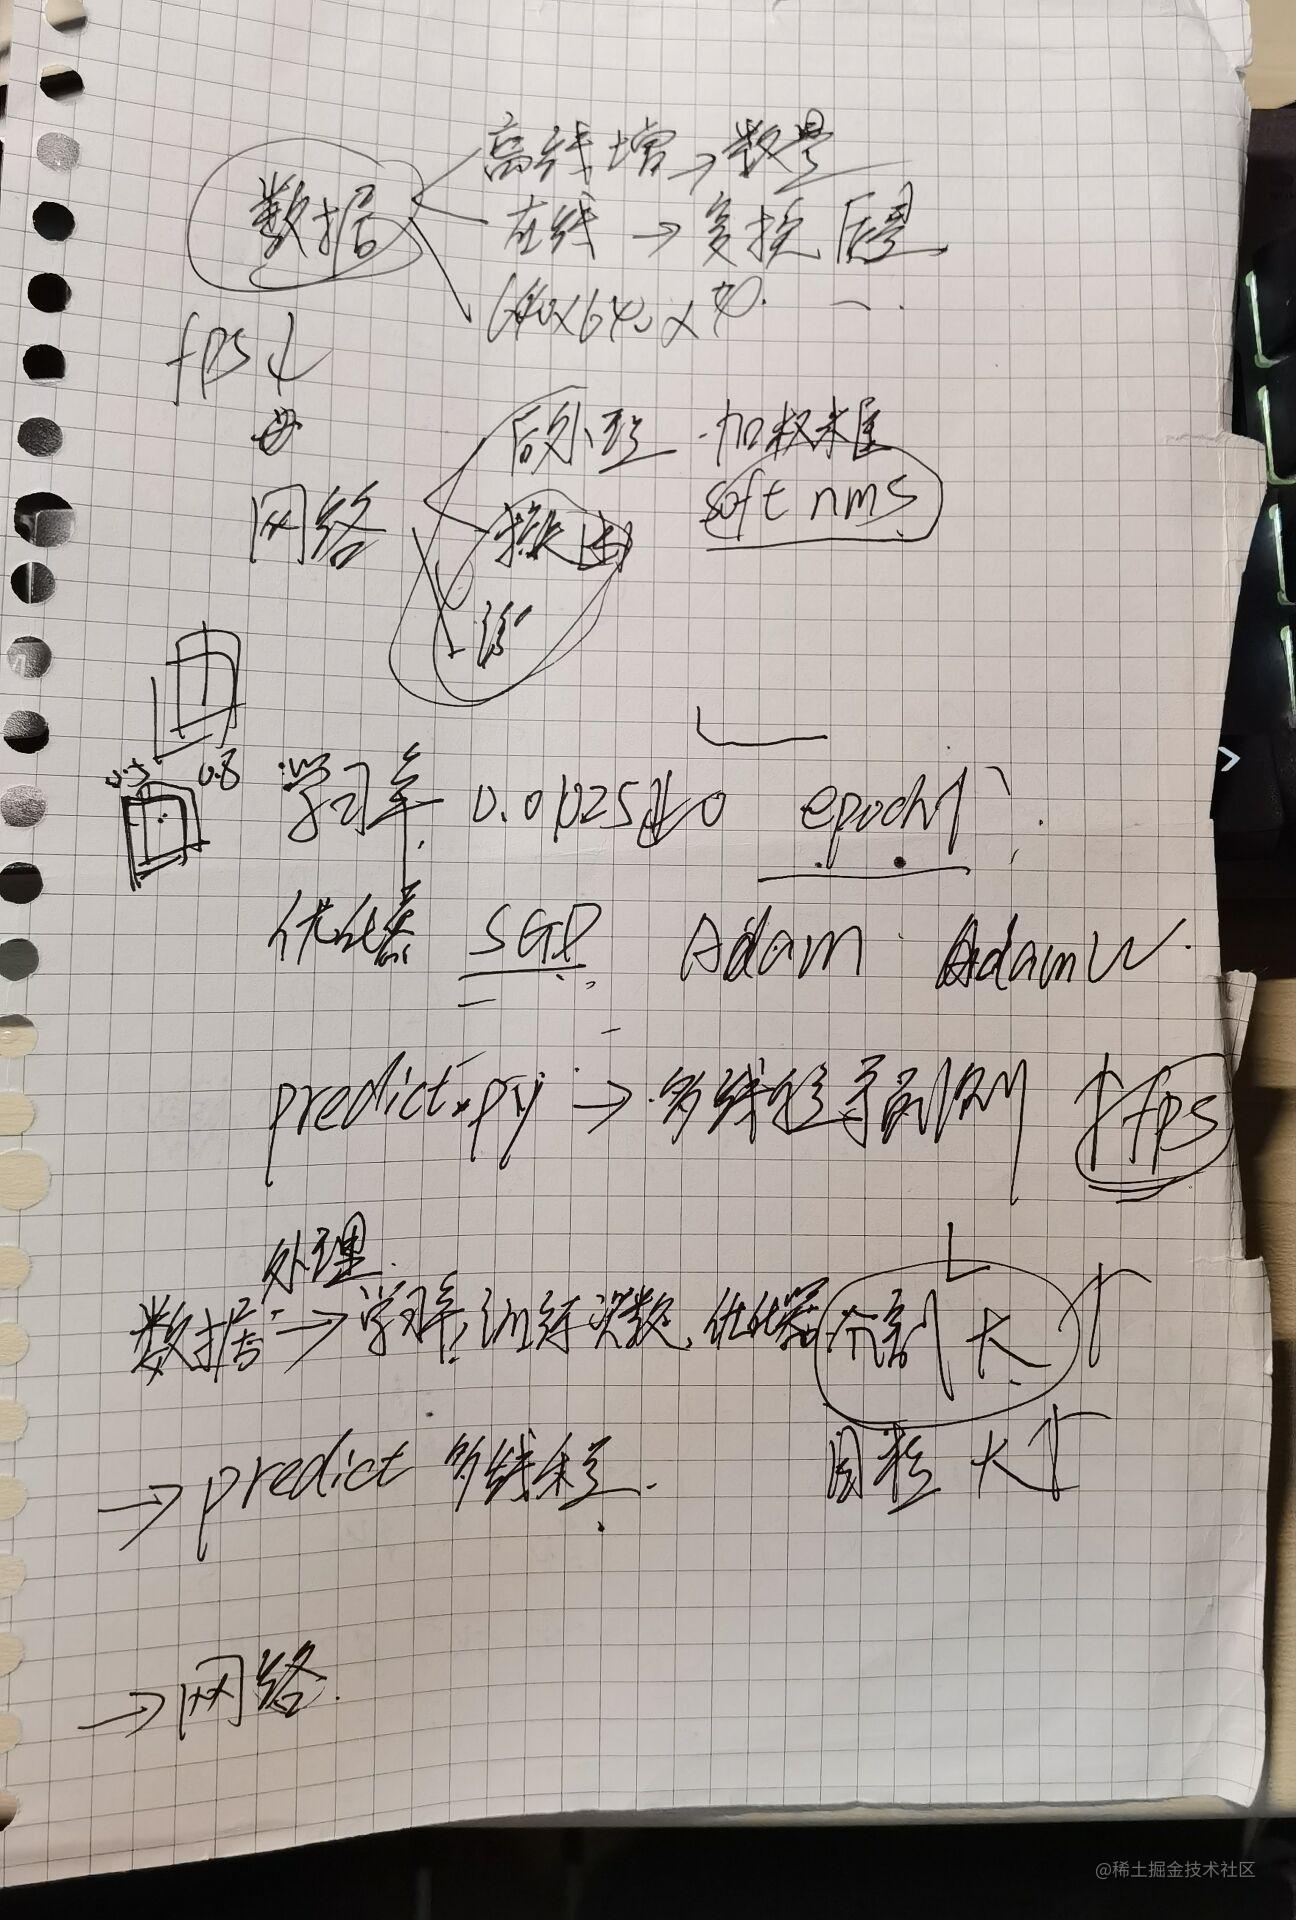 离线增→数量
数据
在线→变换 后景
640x640x
fps↓
后处理 加权求
网络
soft nms
换
0.8
学习率 0.01 0.025 epoch
优化器 SGD Adam AdamW
predict.py → 多线程 ↑fps
处理
数据 → 学习率,训练次数,优化器 分割 大↑
→predict 多线程. 大↑
→网络.
@稀土掘金技术社区